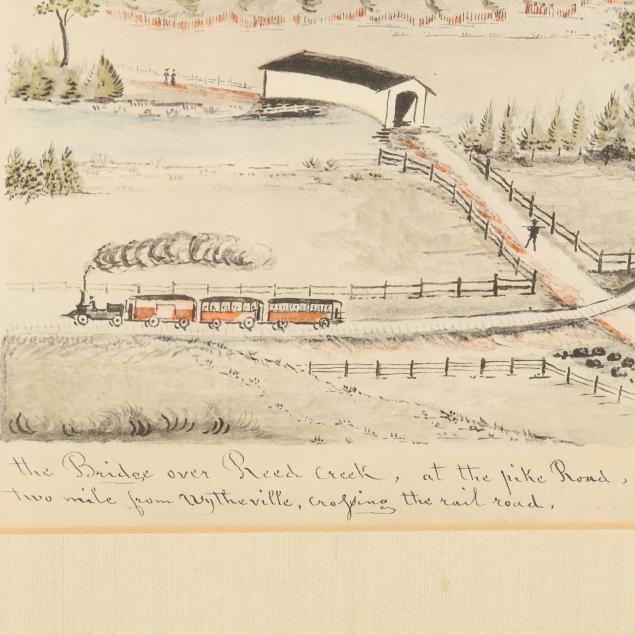 the Bridge over Reed Creek, at the pike Road,
two mile from Wytheville, crossing the rail road.